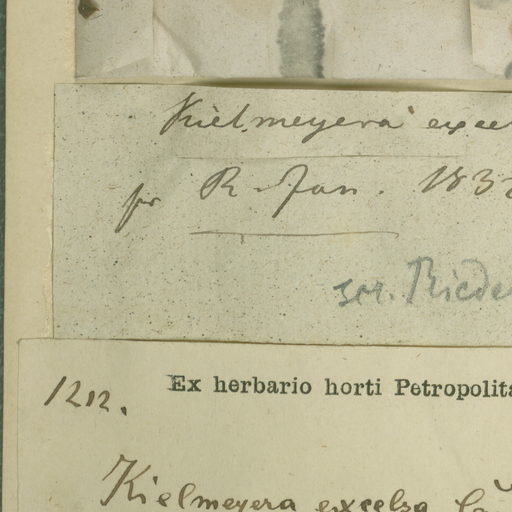 Kielmeyera excel
pr R. Jan. 183
scr. Riede
Ex herbario horti Petropolita
1212.
Kielmeyera excelsa Că